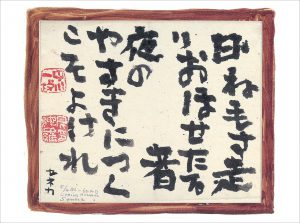 日ねもす走
りおほせたる
者
夜の
やすきにつく
こそよけれ